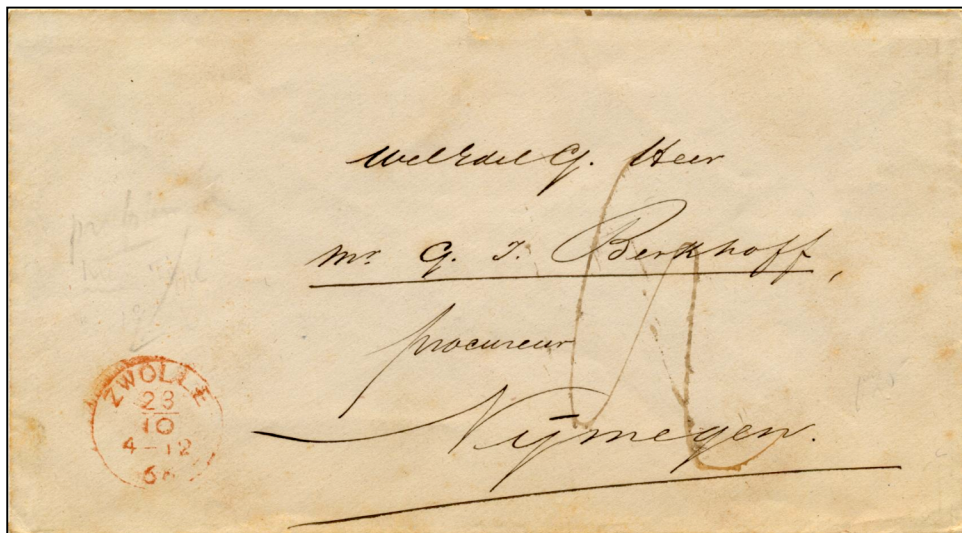 WelEdelG. Heer
Mr. G. J. Berkhoff,
procureur
Nijmegen.
ZWOLLE
28
10
4-12